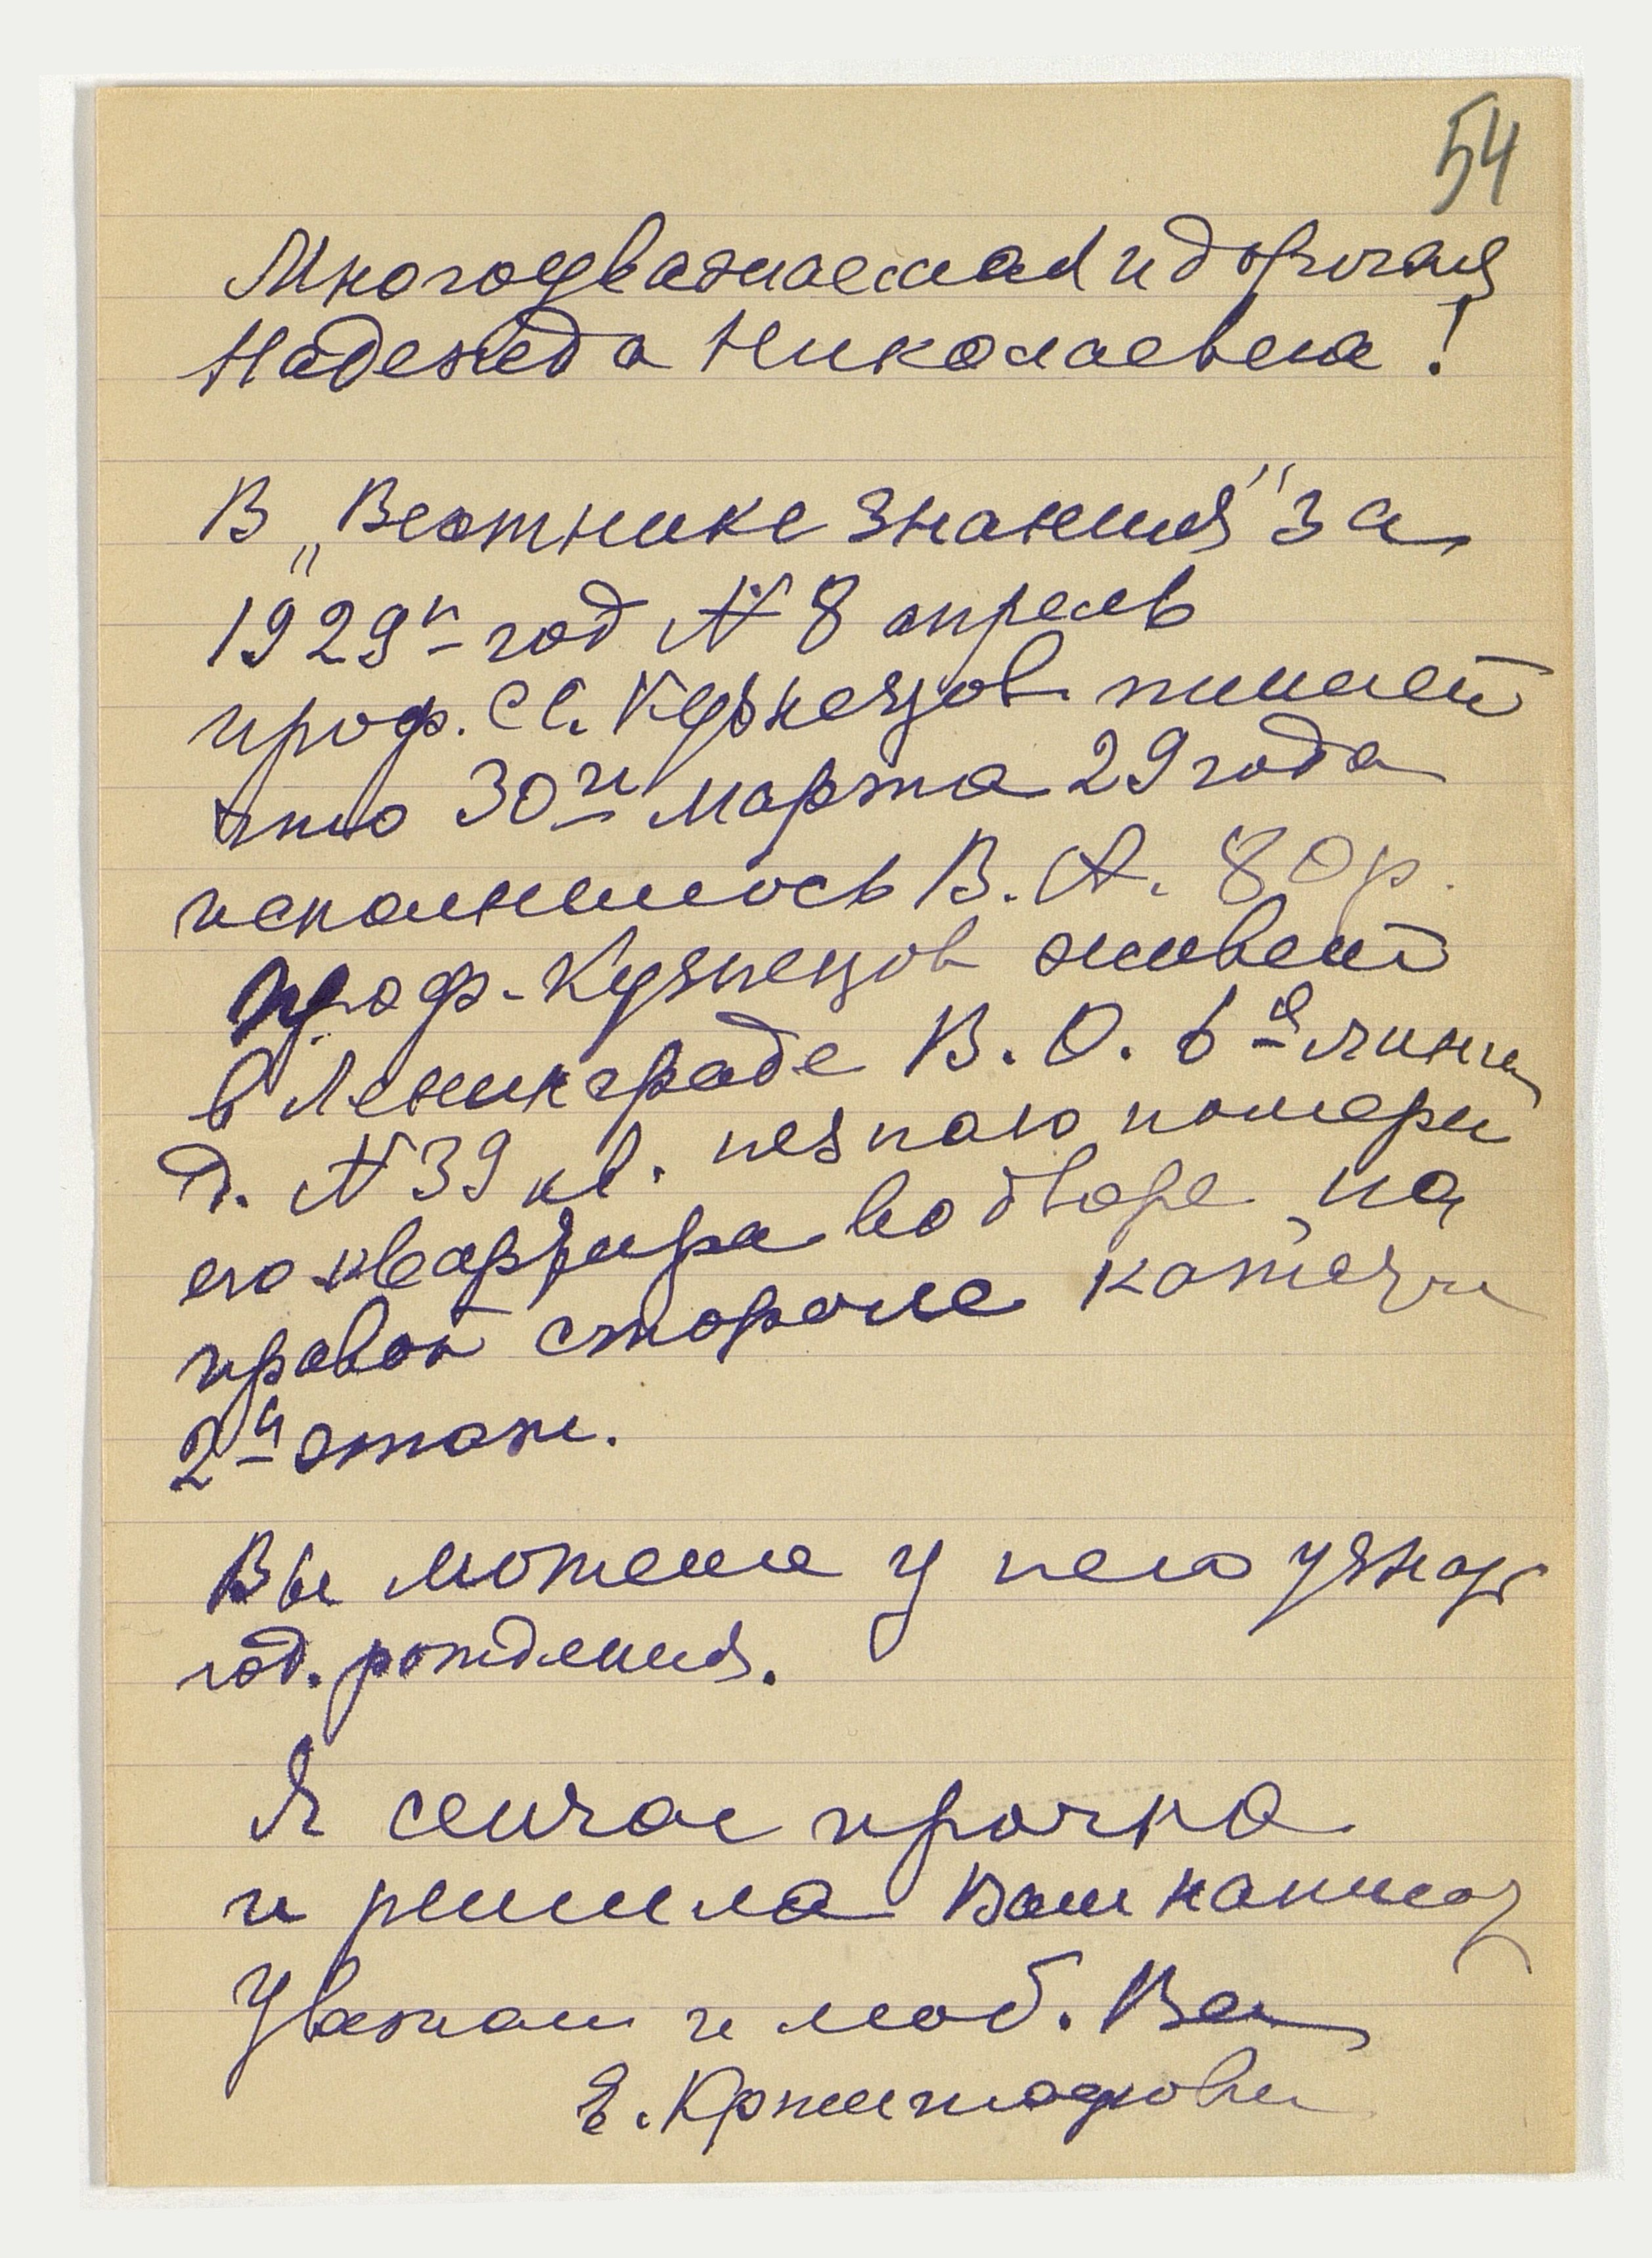 54
Многоуважаемая и дорогая
Надежда Николаевна!
В „Вестнике знания" за
1929й год № 8 апрель
проф. Кузнецов пишет
что 30го марта 29 года
исполнилось В. А. 80 р.
проф. Кузнецов живет
в Ленинграде В. О. 6я линия
д. № 39 кв. незнаю номера
его квартира во дворе на
правой стороне
2й этаж.
Вы можете у него узнать
год. рождения.
Я сейчас прочла
и решила Вам написать
Уважаю и люб. Вас
Е.